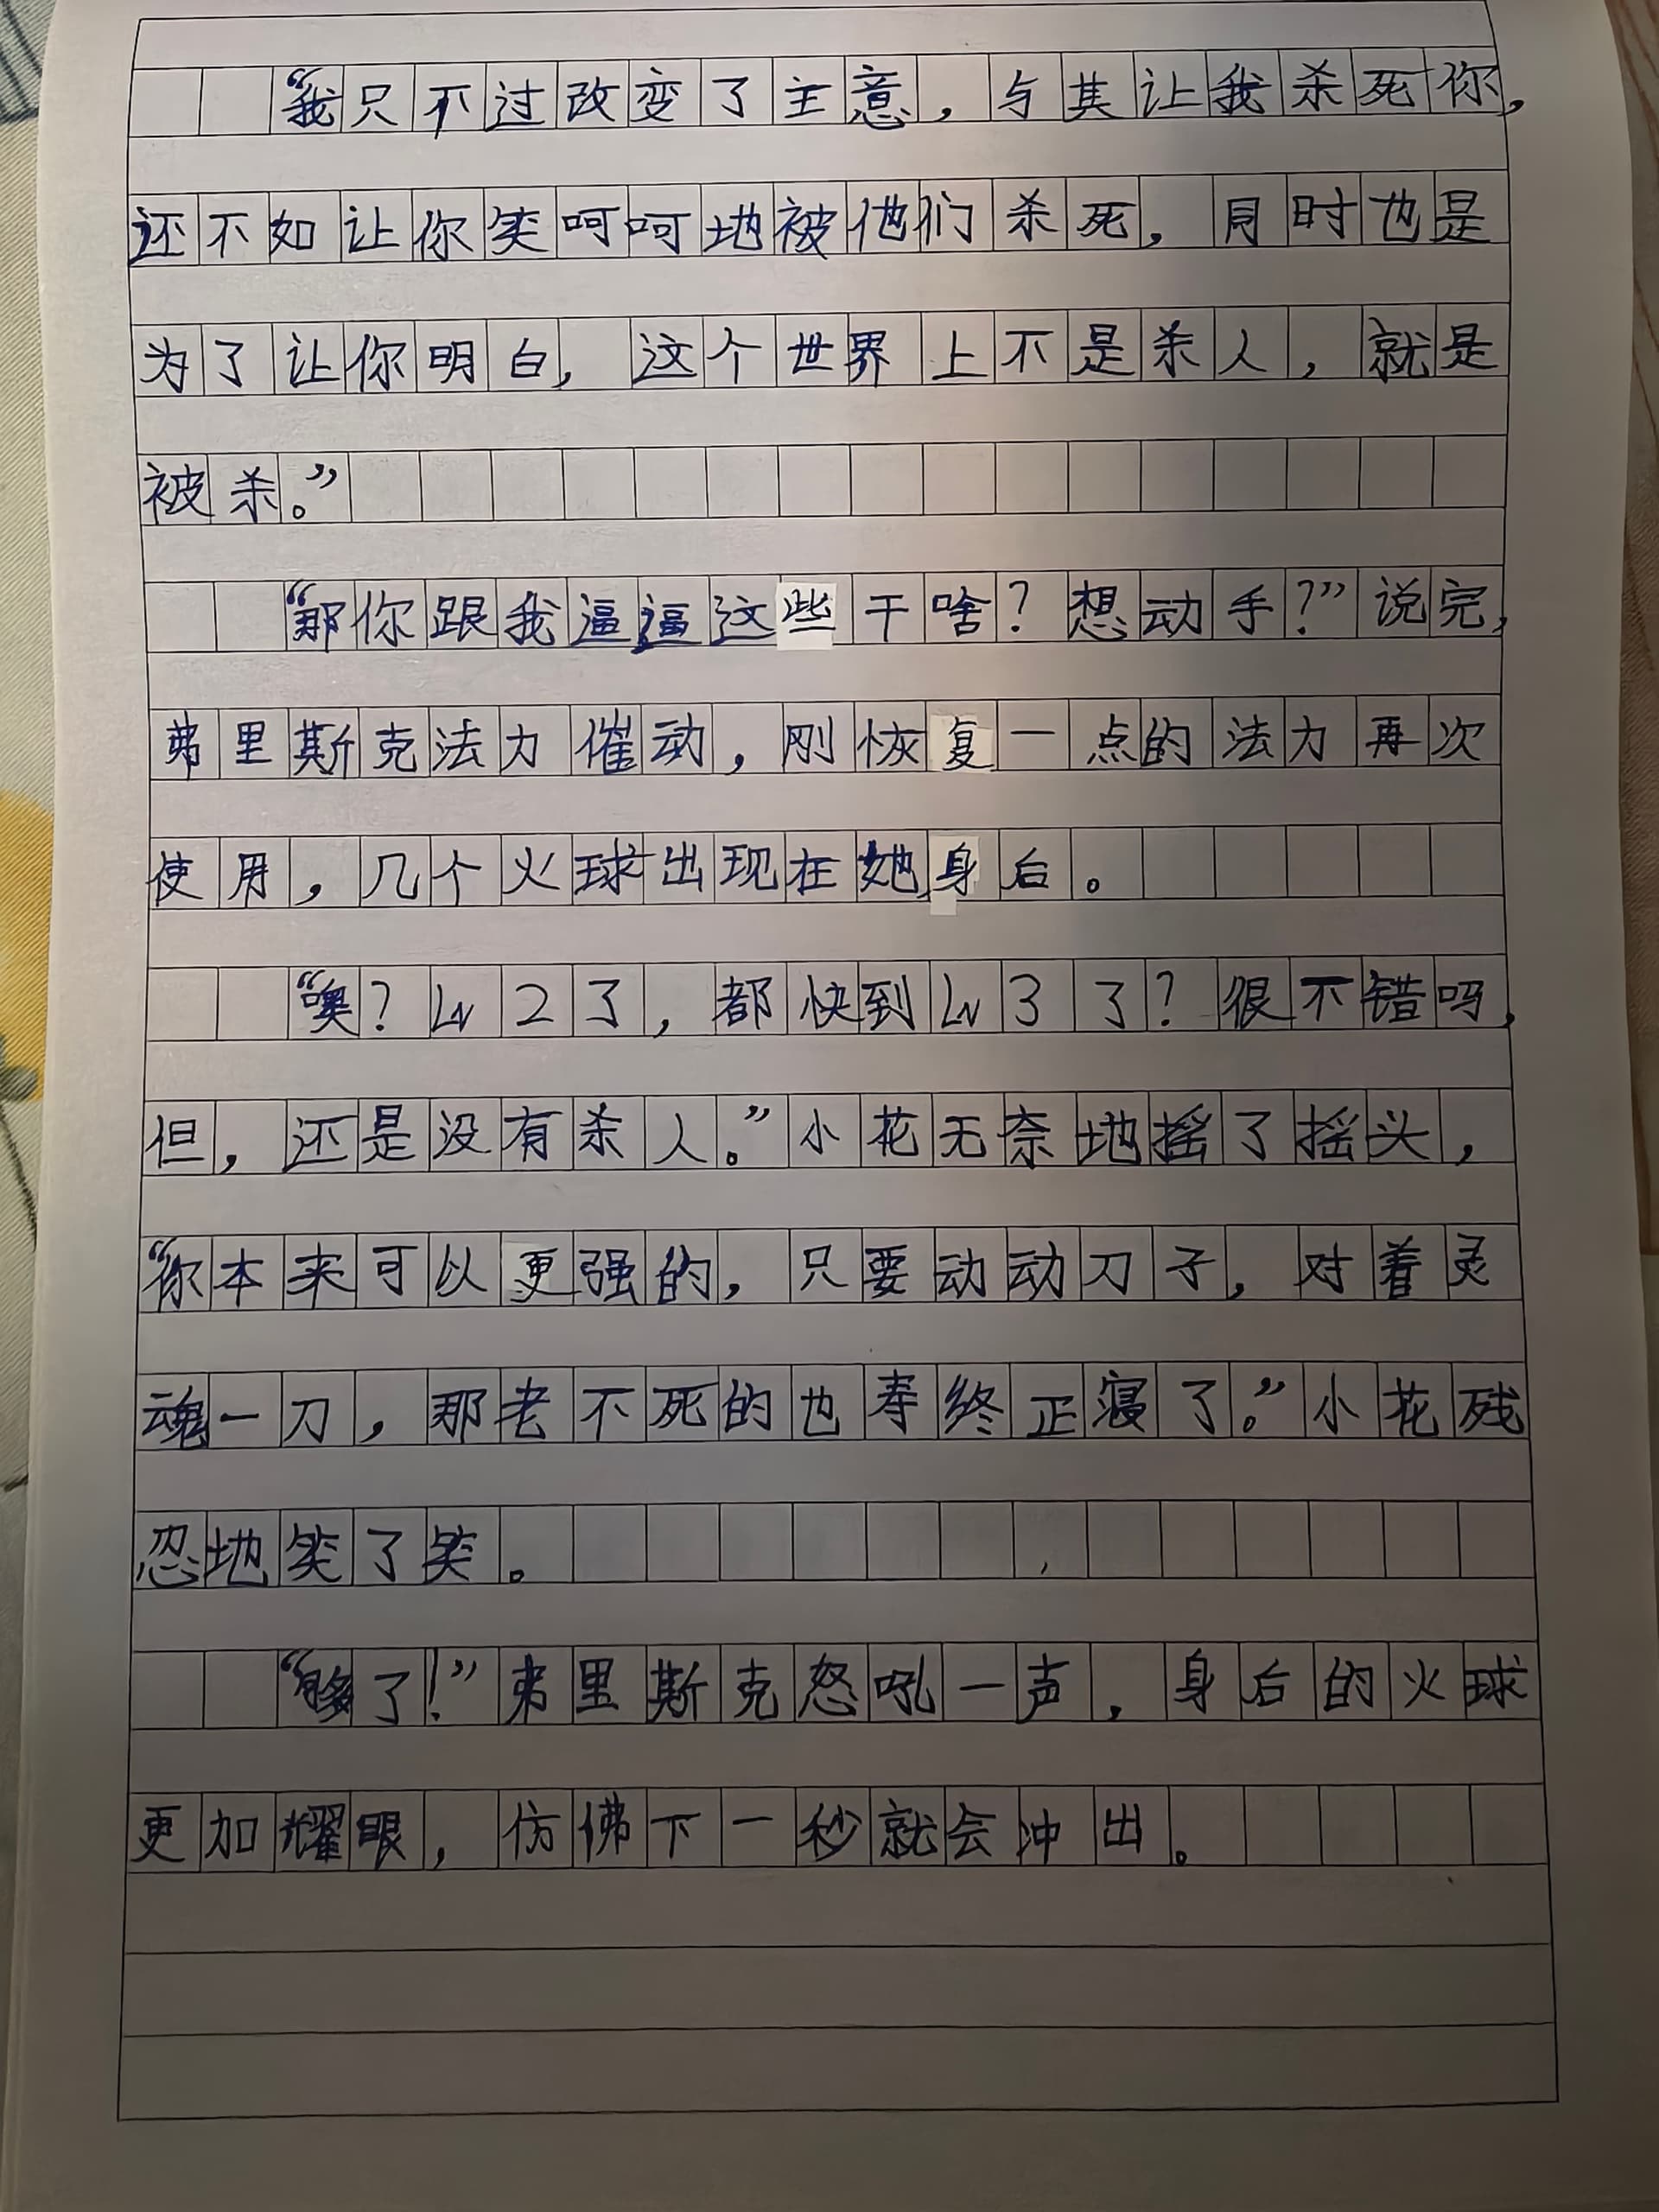 “我只不过改变了主意，与其让我杀死你，
还不如让你笑呵呵地被他们杀死，同时也是
为了让你明白，这个世界上不是杀人，就是
被杀。”
“那你跟我逼逼这些干啥？想动手？”说完，
弗里斯克法力催动，刚恢复一点的法力再次
使用，几个火球出现在她身后。
“噢？LV2了，都快到LV3了？很不错吗，
但，还是没有杀人。”小花无奈地摇了摇头，
“你本来可以更强的，只要动动刀子，对着灵
魂一刀，那老不死的也寿终正寝了。”小花残
忍地笑了笑。
“够了！”弗里斯克怒吼一声，身后的火球
更加耀眼，仿佛下一秒就会冲出。